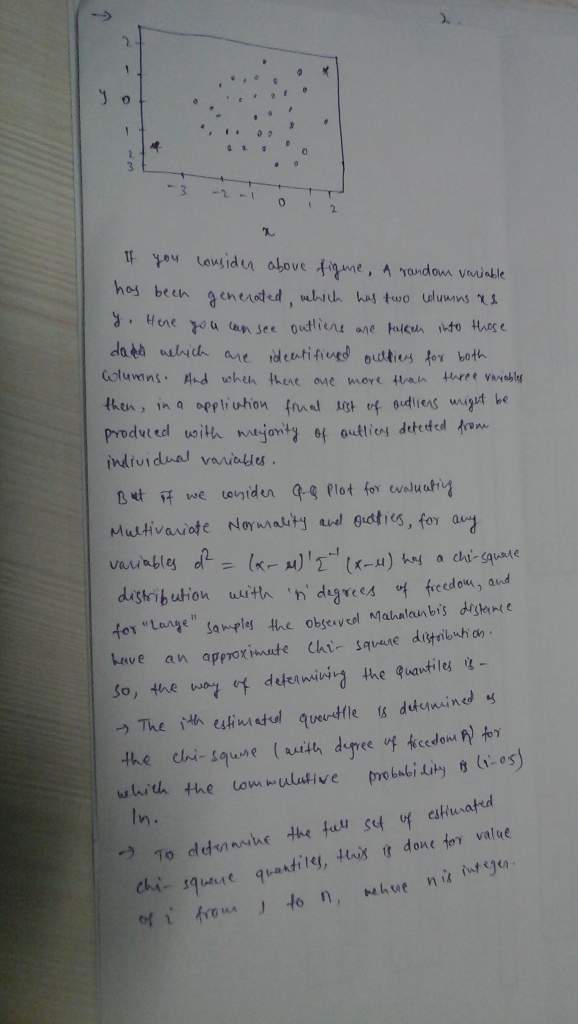 → 2.
2
1
y 0
1
2
3
-3 -2 -1 0 1 2
x
If you consider above figure, A random variable
has been generated, which has two columns x &
y. Here you can see outliers are taken into those
which are identifiered outliers for both
columns. And when there are more than three variables
then, in a application final list of outliers might be
produced with majority of outliers detected from
individual variables.
But if we consider Q-Q Plot for evaluating
Multivariate Normality and outlies, for any
variables d² = (x-μ)' Σ⁻¹ (x-μ) has a chi-square
distribution with 'n' degrees of freedom, and
for "Large" samples the observed Mahalanbis distance
have an approximate Chi-square distribution.
So, the way of determining the quantiles is -
→ The ith estimated quantile is determined as
the chi-square (with degree of freedom) for
which the commulative probability is (i-0.5)
/n.
→ To determine the full set of estimated
chi-square quantiles, this is done for value
of i from 1 to n, where n is integer.